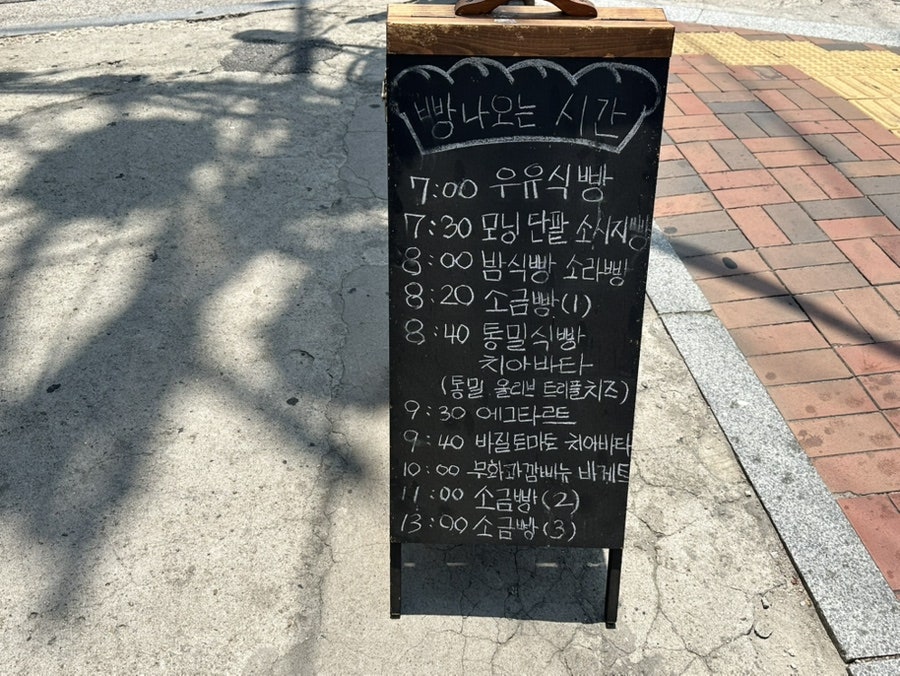 빵 나오는 시간
7:00 우유식빵
7:30 모닝 단팥 소시지빵
8:00 밤식빵 소라빵
8:20 소금빵(1)
8:40 통밀식빵
치아바타
(통밀 올리브 트리플치즈)
9:30 에그타르트
9:40 바질토마토 치아바타
10:00 무화과깜빠뉴 바게트
11:00 소금빵(2)
13:00 소금빵(3)